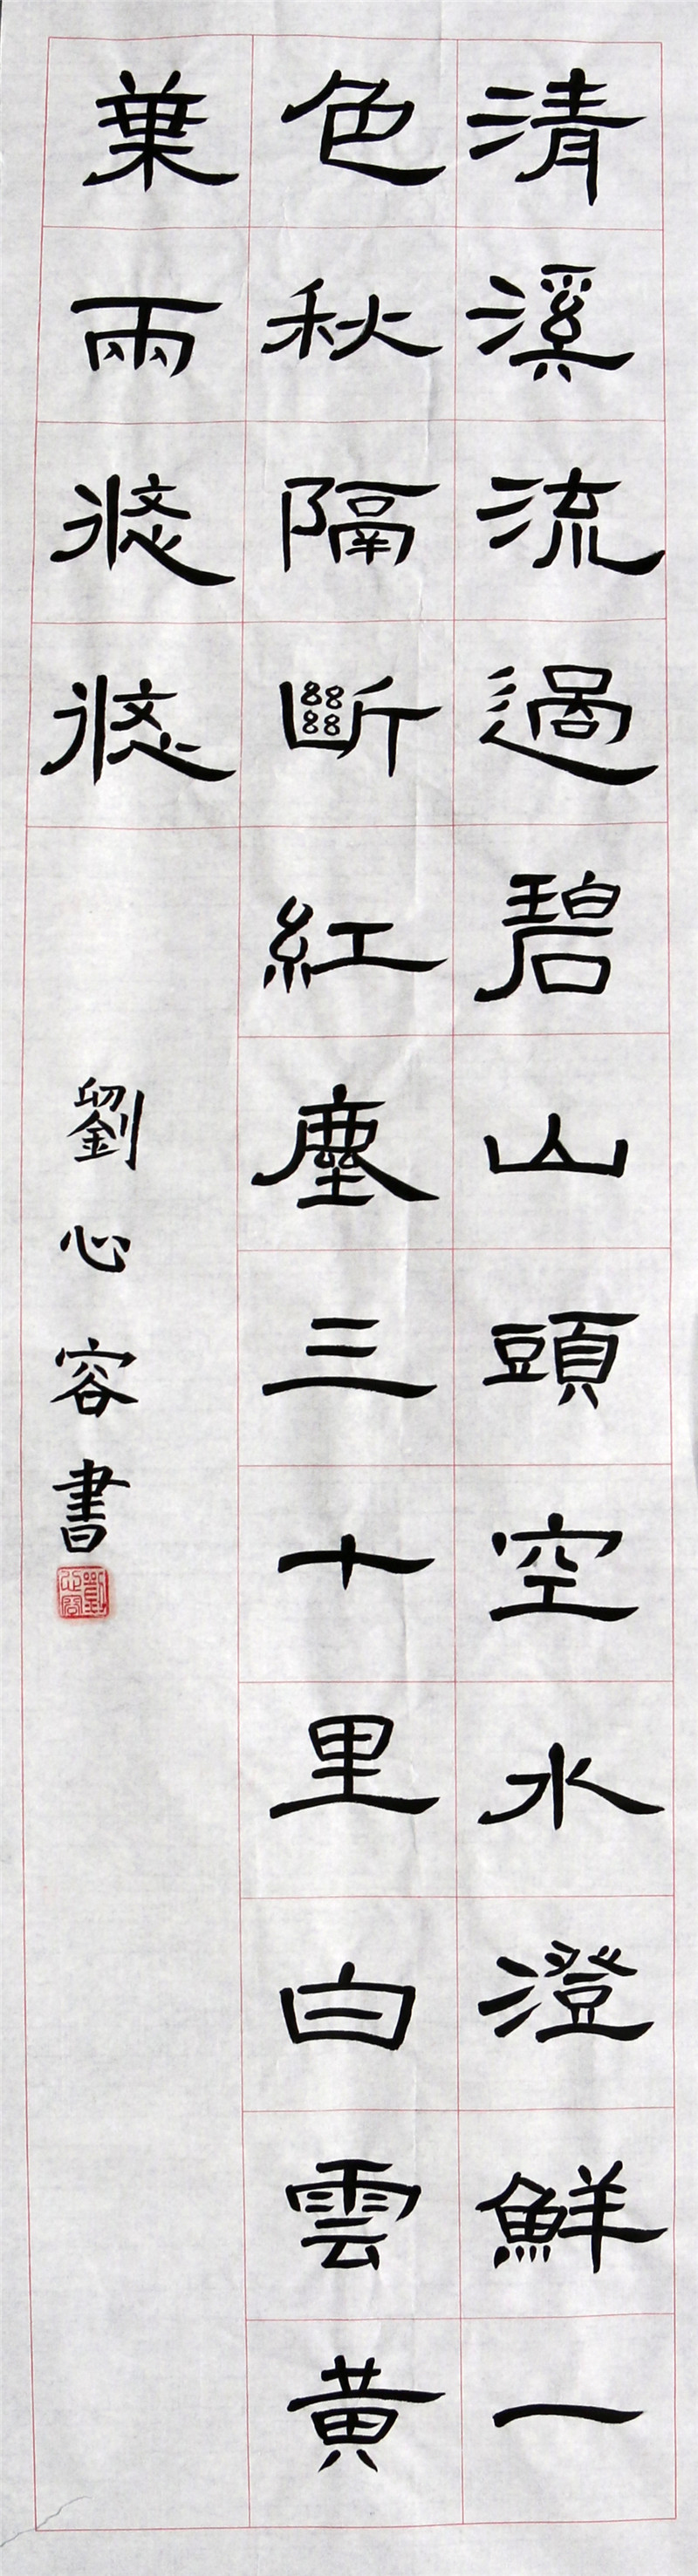 清溪流過碧山頭空水澄鮮一
色秋隔斷紅塵三十里白雲黃
葉兩悠悠
劉心容書
劉心容